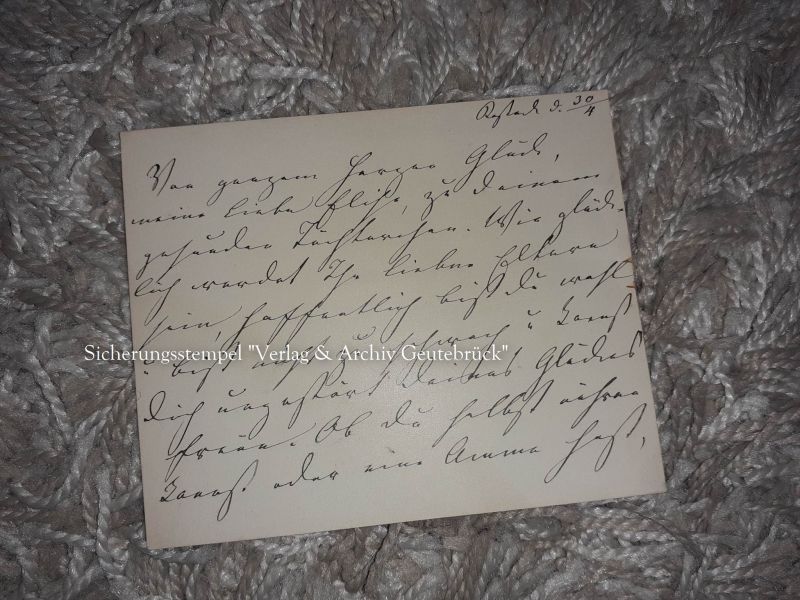 Rostock d. 30/4
Von ganzem Herzen Glück,
meine liebe Elise, zu Deinem
gesunden Töchterchen. Wie glück-
lich werdet Ihr lieben Eltern
sein, hoffentlich bist Du wohl
u bist nicht zu schwach u kannst
Sicherungsstempel "Verlag & Archiv Geutebrück"
Dich ungestört Deines Glückes
freuen. Ob Du selbst nähren
kannst oder eine Amme hast,